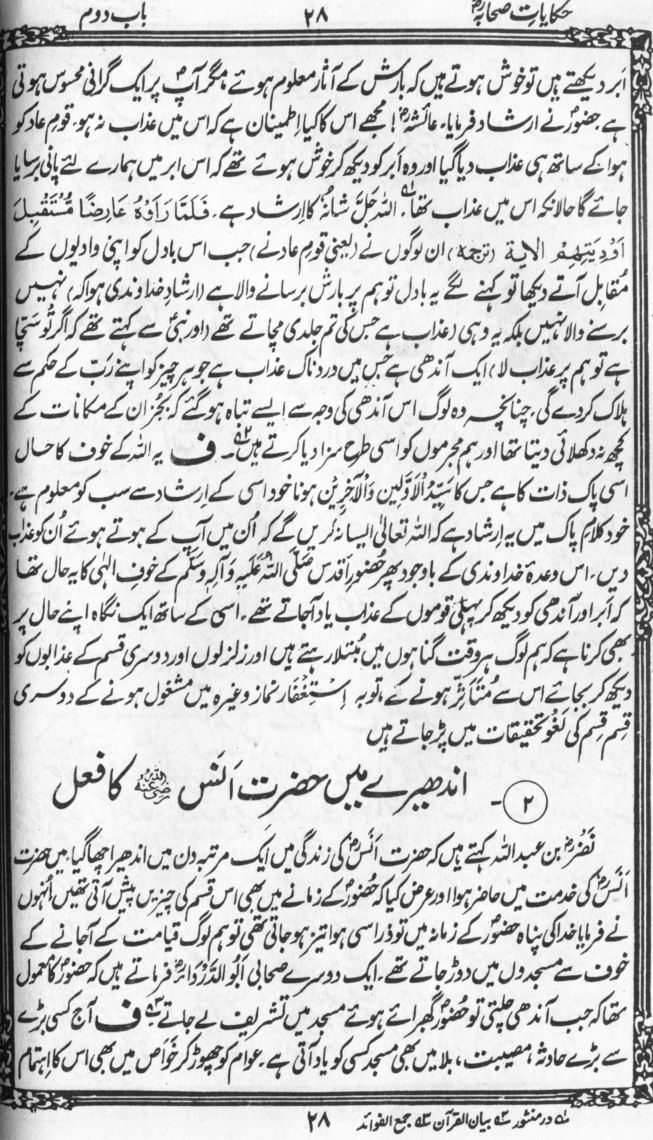 حکایات صحابہؓ ۲۸ باب دوم
اَبر دیکھتے ہیں تو خوش ہوتے ہیں کہ بارش کے آثار معلوم ہوئے مگر آپؐ پر ایک گرانی محسوس ہوتی
ہے حضورؐ نے ارشاد فرمایا۔ عائشہؓ! مجھے اس کا کیا اطمینان ہے کہ اس میں عذاب نہ ہو۔ قوم عاد کو
ہوا کے ساتھ ہی عذاب دیا گیا اور وہ اَبر کو دیکھ کر خوش ہوئے تھے کہ اس ابر میں ہمارے لئے پانی برسایا
جائے گا حالانکہ اس میں عذاب تھا۱؎۔ اللہ جَلَّ شانہٗ کا اِرشاد ہے۔ فَلَمَّا رَاَوْہُ عَارِضًا مُّسْتَقْبِلَ
اَوْدِیَتِہِمْ الاٰیۃ (ترجمہ) ان لوگوں نے (یعنی قوم عاد نے) جب اس بادل کو اپنی وادیوں کے
مُقابِل آتے دیکھا تو کہنے لگے یہ بادل تو ہم پر بارش برسانے والا ہے (ارشادِ خداوندی ہوا کہ) نہیں
برسنے والا نہیں بلکہ یہ وہی (عذاب ہے جس کی تم جلدی مچاتے تھے (اور نبیؑ سے کہتے تھے کہ اگر تُو سچّا
ہے تو ہم پر عذاب لا) ایک آندھی ہے جس میں دردناک عذاب ہے جو ہر چیز کو اپنے رَبّ کے حکم سے
ہلاک کر دے گی۔ چنانچہ وہ لوگ اس آندھی کی وجہ سے ایسے تباہ ہو گئے کہ بجُز ان کے مکانات کے
کچھ نہ دکھلائی دیتا تھا اور ہم مجرموں کو اسی طرح سزا دیا کرتے ہیں۲؎۔ ف یہ اللہ کے خوف کا حال
اسی پاک ذات کا ہے جس کا سَیِّدُ الْاَوَّلِین وَالْآخِرِیْن ہونا خود اسی کے اِرشاد سے سب کو معلوم ہے۔
خود کلامِ پاک میں یہ اِرشاد ہے کہ اللہ تعالیٰ ایسا نہ کریں گے کہ اُن میں آپ کے ہوتے ہوئے اُن کو عذاب
دیں۔ اس وعدۂ خداوندی کے باوجود پھر حُضورِ اقدس صَلَّی اللّٰہُ عَلَیْہِ وَآلِہٖ وَسَلَّم کے خوفِ الٰہی کا یہ حال تھا
کہ اَبر اور آندھی کو دیکھ کر پہلی قوموں کے عذاب یاد آ جاتے تھے۔ اسی کے ساتھ ایک نگاہ اپنے حال پر
بھی کرنا ہے کہ ہم لوگ ہر وقت گناہوں میں مُبتلا رہتے ہیں اور زلزلوں اور دوسری قسم کے عذابوں کو
دیکھ کر بجائے اس سے مُتَأَثِّر ہونے کے، توبہ اِسْتِغْفار نماز وغیرہ میں مشغول ہونے کے دوسری
قسم قسم کی لَغْو تحقیقات میں پڑ جاتے ہیں
۲۔ اندھیرے میں حضرت اَنَس رضی اللہ عنہ کا فعل
نَضْرؒ بن عبد اللہ کہتے ہیں کہ حضرت اَنَسؓ کی زندگی میں ایک مرتبہ دن میں اندھیرا چھا گیا۔ میں حضرت
اَنَسؓ کی خدمت میں حاضر ہوا اور عرض کیا کہ حُضورؐ کے زمانے میں بھی اس قسم کی چیزیں پیش آتی تھیں۔ اُنہوں
نے فرمایا خدا کی پناہ حضورؐ کے زمانہ میں تو ذرا سی ہوا تیز ہو جاتی تھی تو ہم لوگ قیامت کے آ جانے کے
خوف سے مسجدوں میں دوڑ جاتے تھے۔ ایک دوسرے صحابی اَبُو الدَّرْدَاءؓ فرماتے ہیں کہ حضورؐ کا معمول
تھا کہ جب آندھی چلتی تو حُضورؐ گھبرائے ہوئے مسجد میں تشریف لے جاتے۳؎ ف آج کسی بڑے
سے بڑے حادثہ، مصیبت، بلا میں بھی مسجد کسی کو یاد آتی ہے۔ عوام کو چھوڑ کر خَوَاص میں بھی اس کا اہتمام
۱؎ در منثور ۲؎ بیان القرآن ۳؎ جمع الفوائد ۲۸